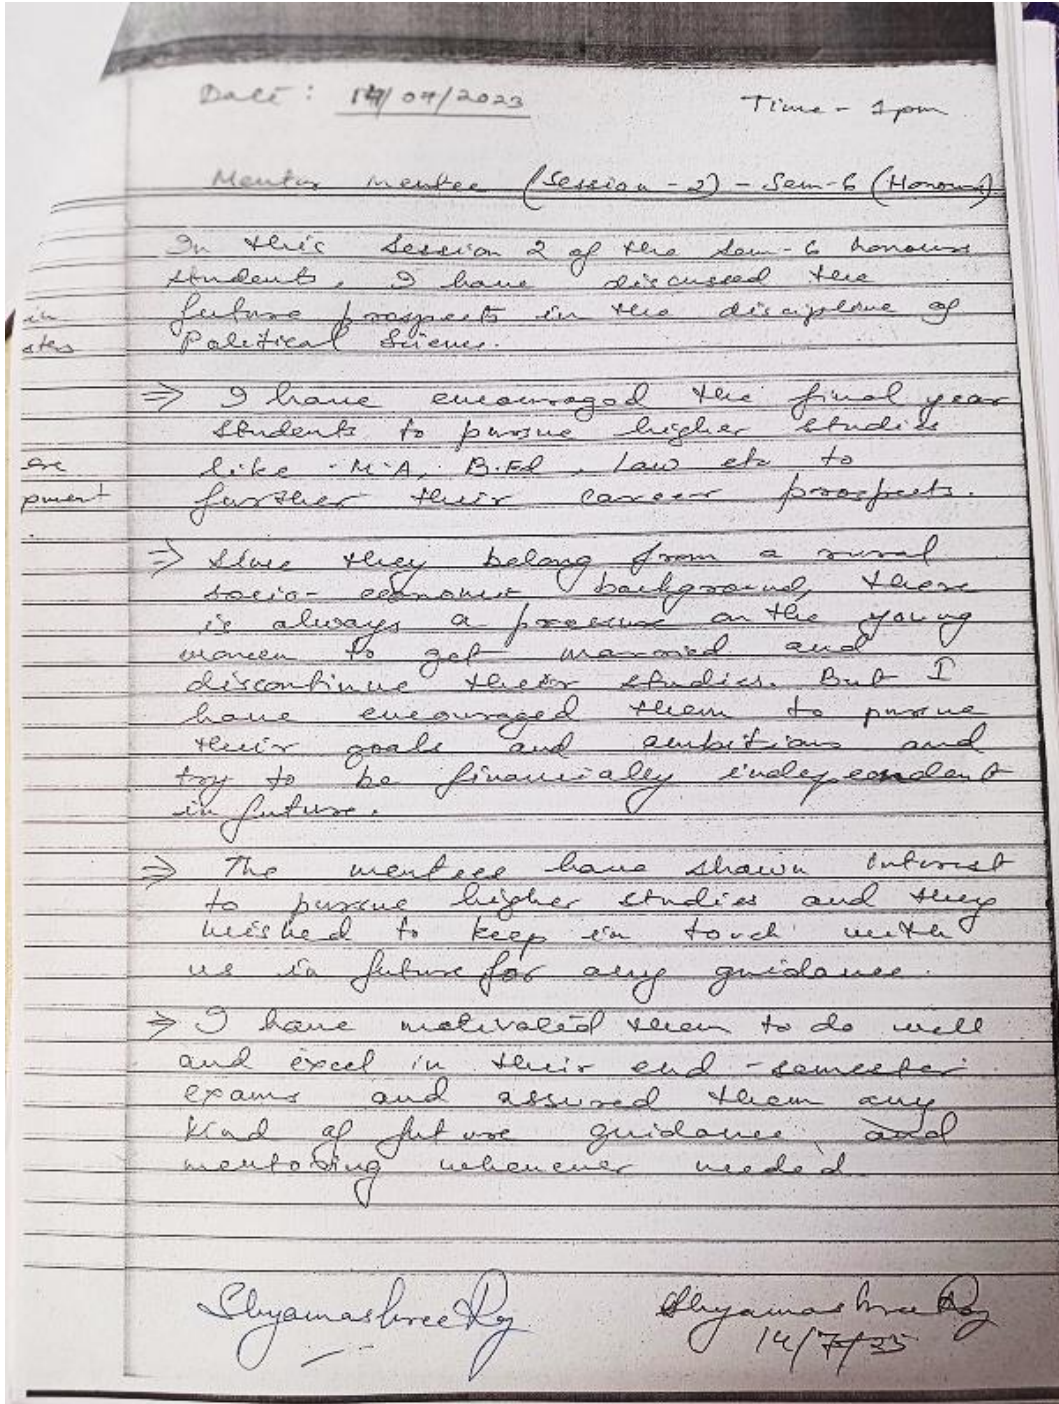 Date : 14/07/2023
Time - 1pm
Mentor mentee (Session - 2) - Sem-6 (Honours)
In this Session 2 of the Sem-6 honours
students, I have discussed the
in
future prospects in the discipline of
Political Science.
⇒ I have encouraged the final year
students to pursue higher studies
like M.A, B.Ed, Law etc to
pment
further their career prospects.
⇒ Since they belong from a rural
socio-economic background, there
is always a pressure on the young
women to get married and
discontinue their studies. But I
have encouraged them to pursue
their goals and ambitions and
try to be financially independent
in future.
⇒ The mentees have shown interest
to pursue higher studies and they
wished to keep in touch with
us in future for any guidance.
⇒ I have motivated them to do well
and excel in their end-semester
exams and assured them any
kind of future guidance and
mentoring whenever needed.
Shyamashree Roy
Shyamashree Roy
14/7/